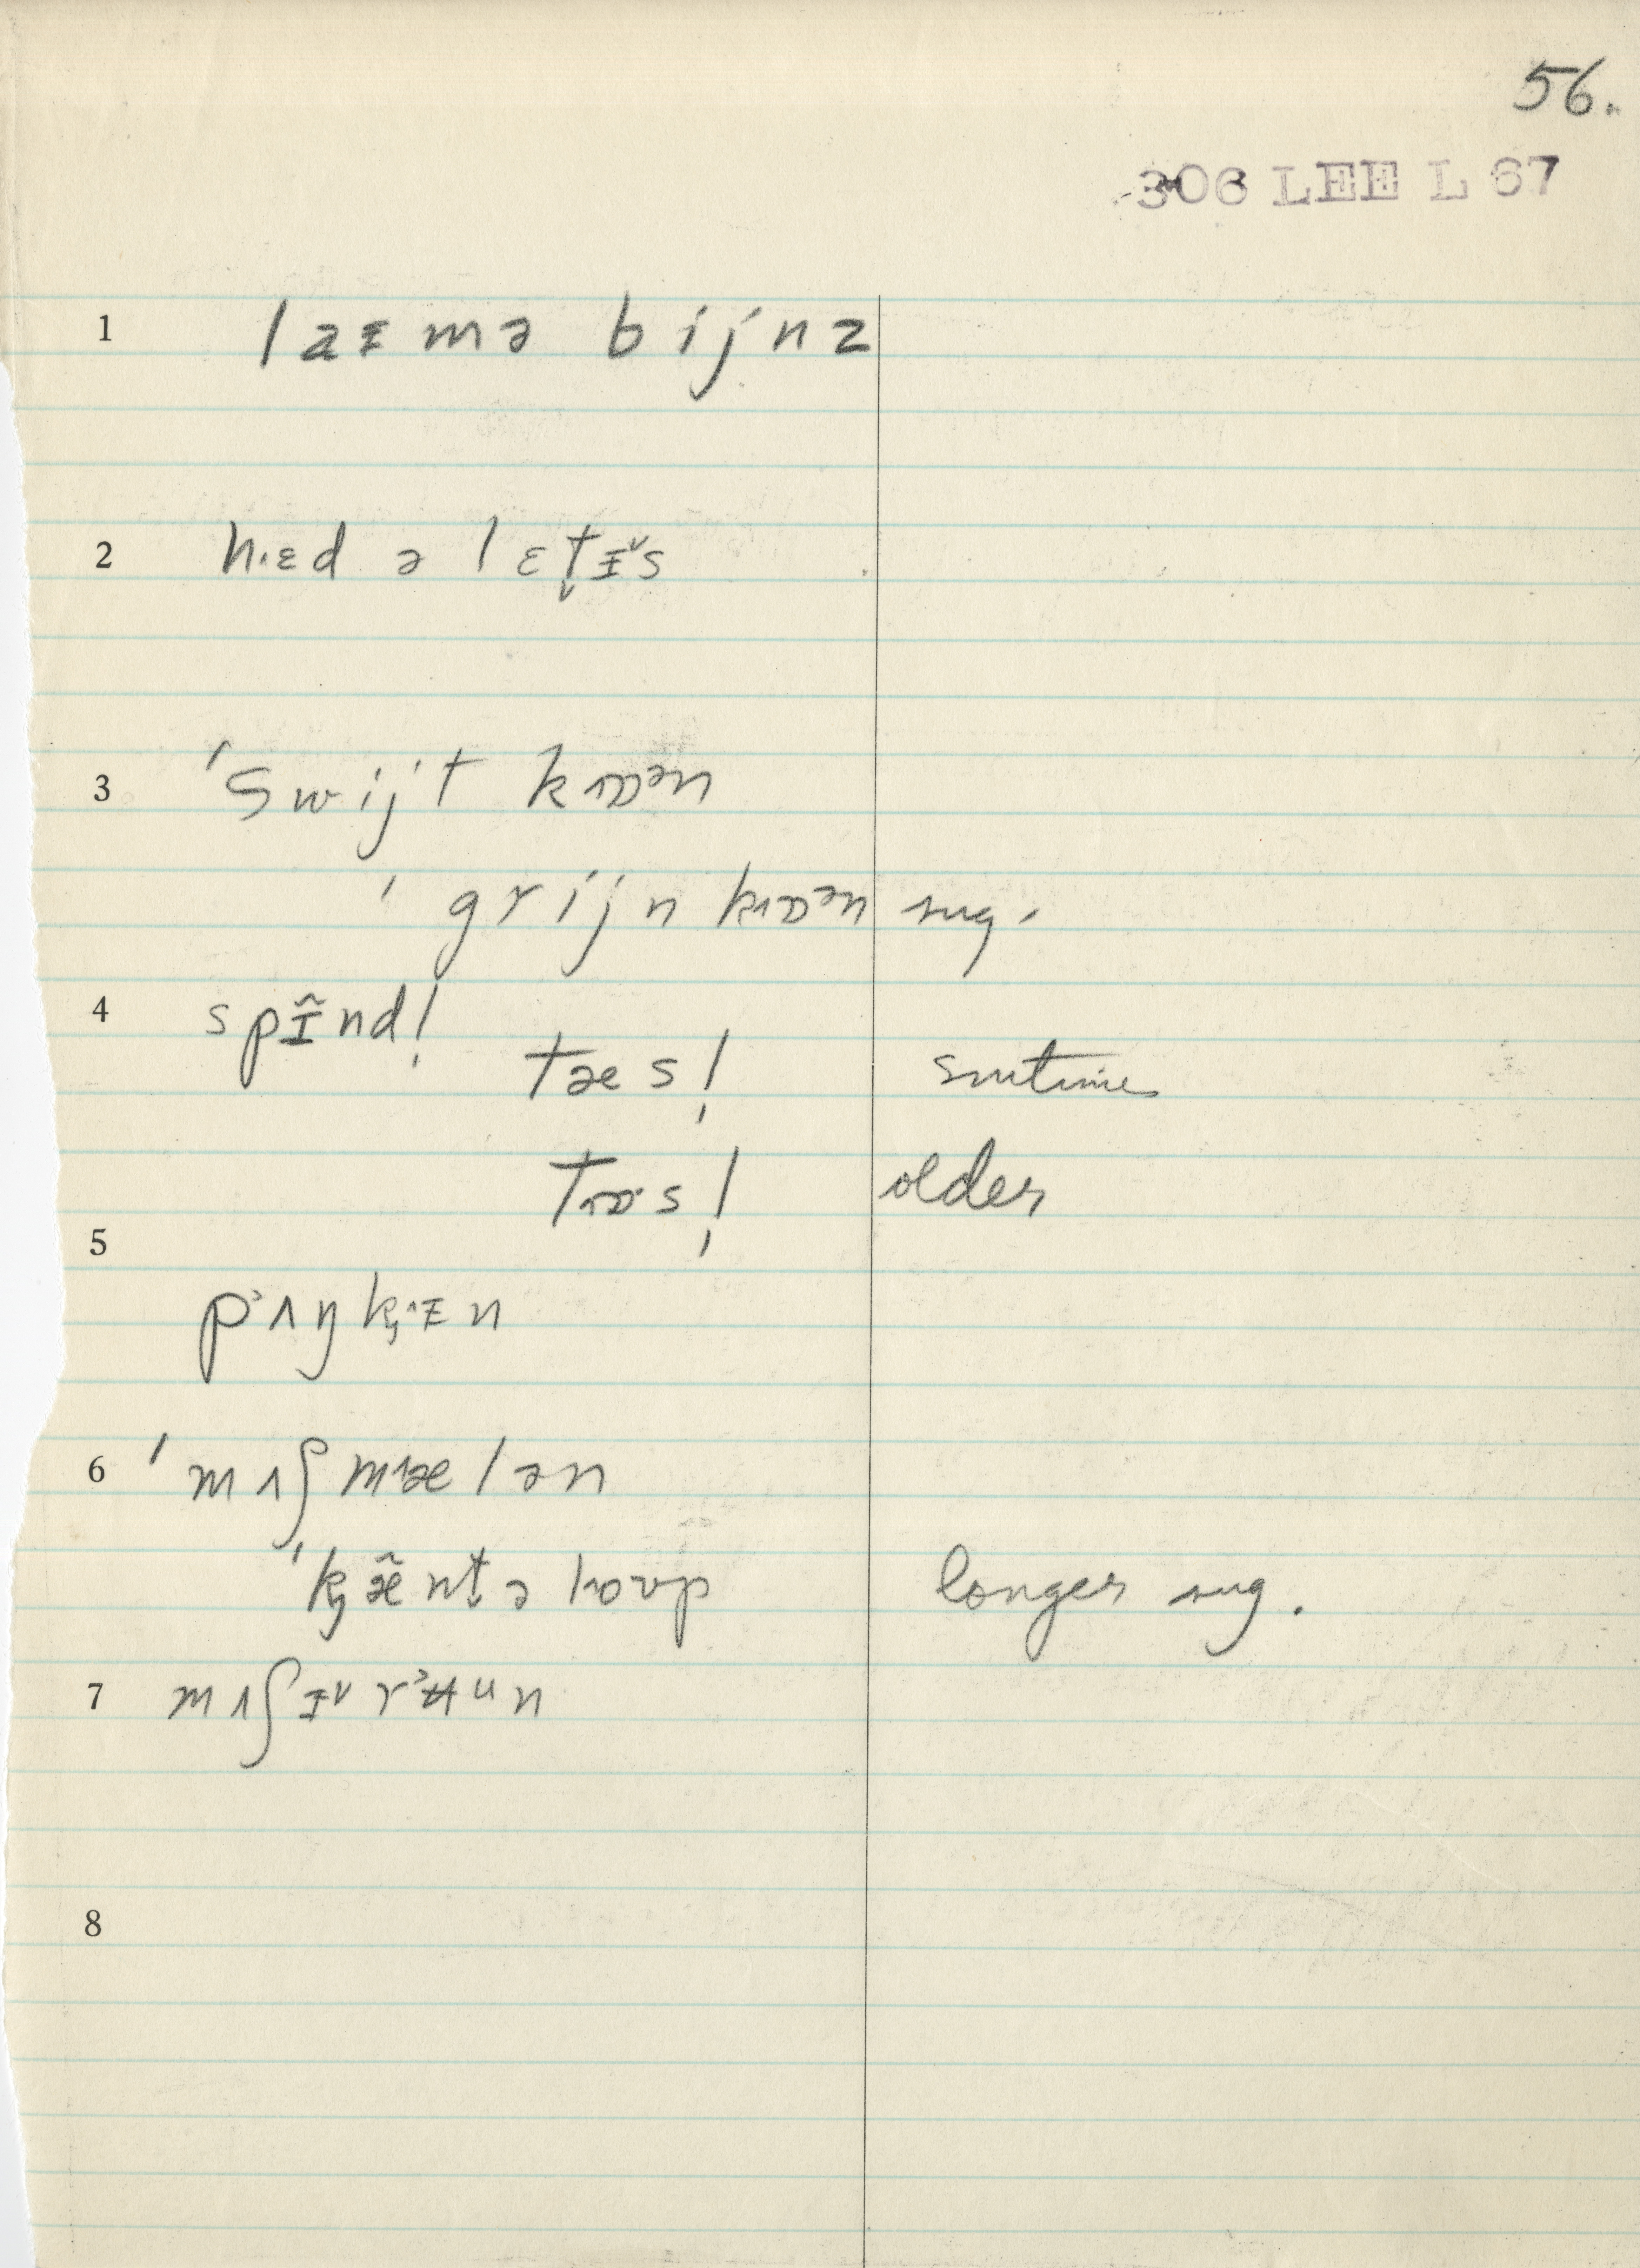 56.
306 LEE L 67
1 laᵻmə bijnz
2 hɛd ə lɛt̬ᵻ̌s
3 ˈswijt kɒən
ˈgrijn kɒən sug.
4 spᵻ̃nd!
tæs! smtimes
tɒs! older
5
pʌŋkᵻn
6 ˈmʌʃmælən
ˈkæ̃nt̬əloʊp longer sug.
7 mʌʃᵻ̌rʉun
8